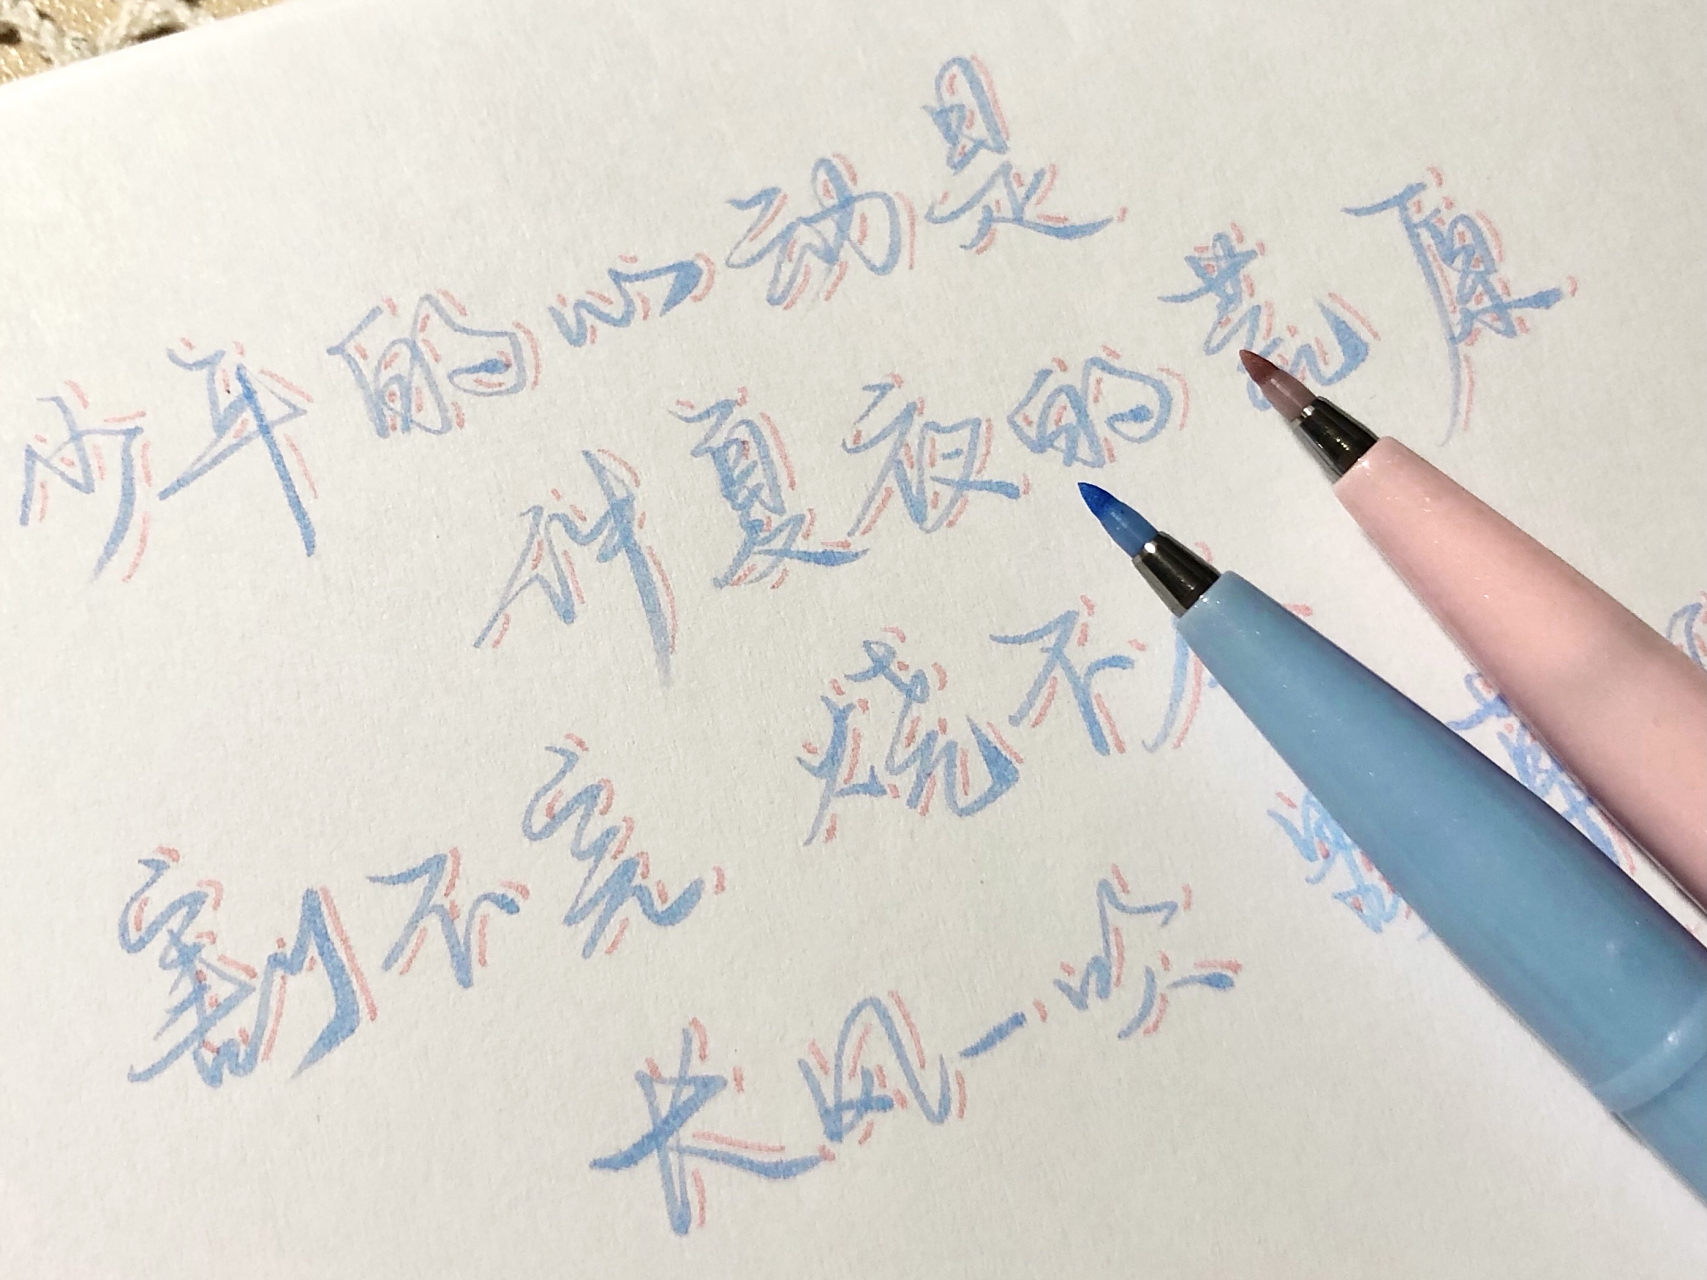 少年的心动是
仲夏夜的荒原
割不完 烧不
长风一吹